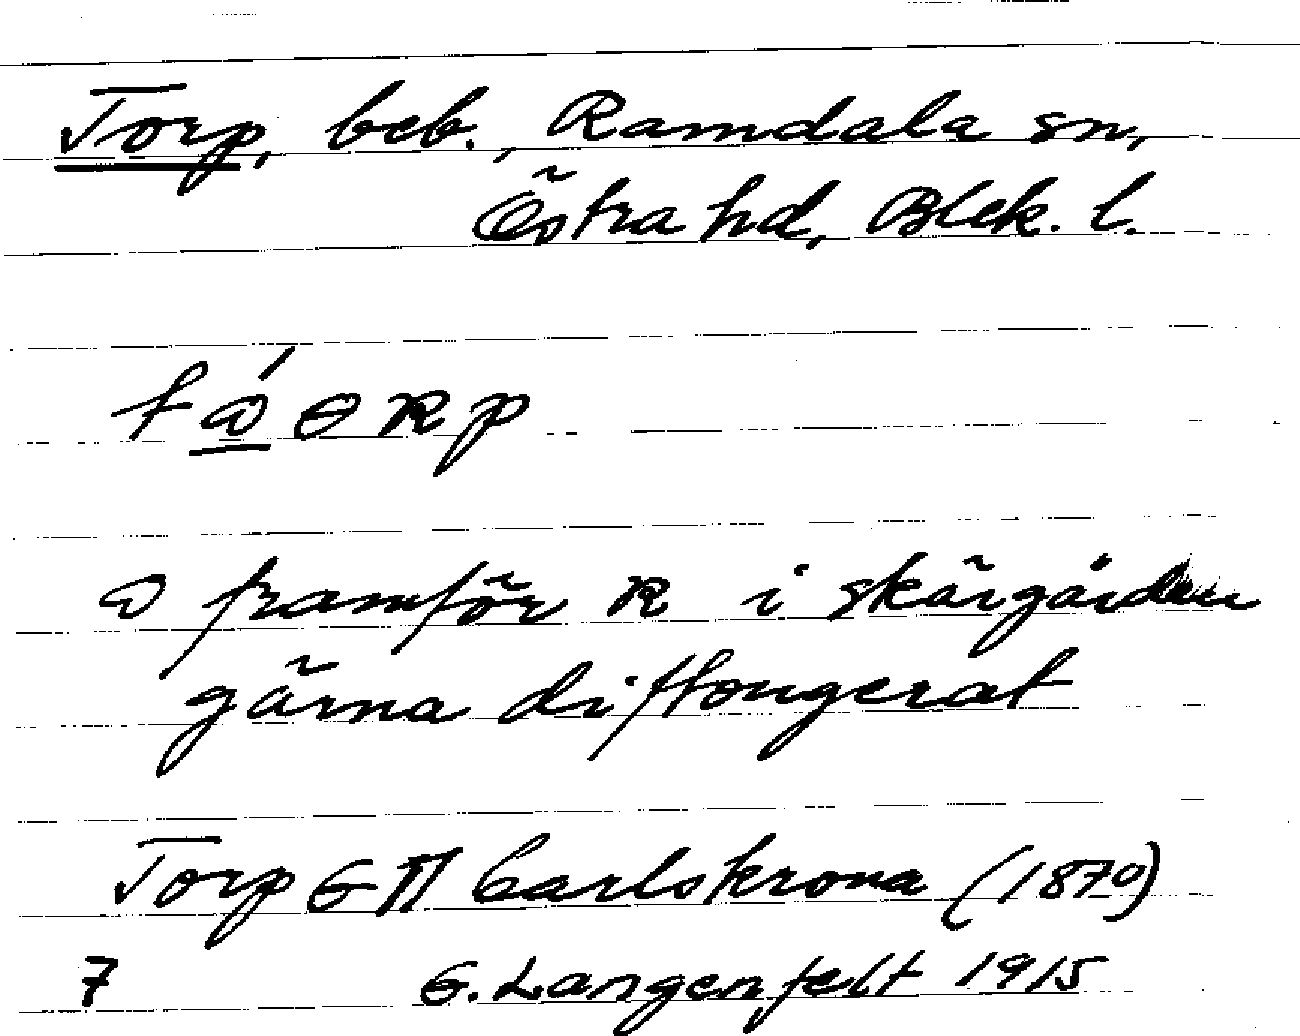 Torp, beb., Ramdala sn,
Östra hd, Blek. l.
framför R i skärgården
gärna diftongerat
Torp GK Carlskrona (1870)
7 G. Langenfelt 1915